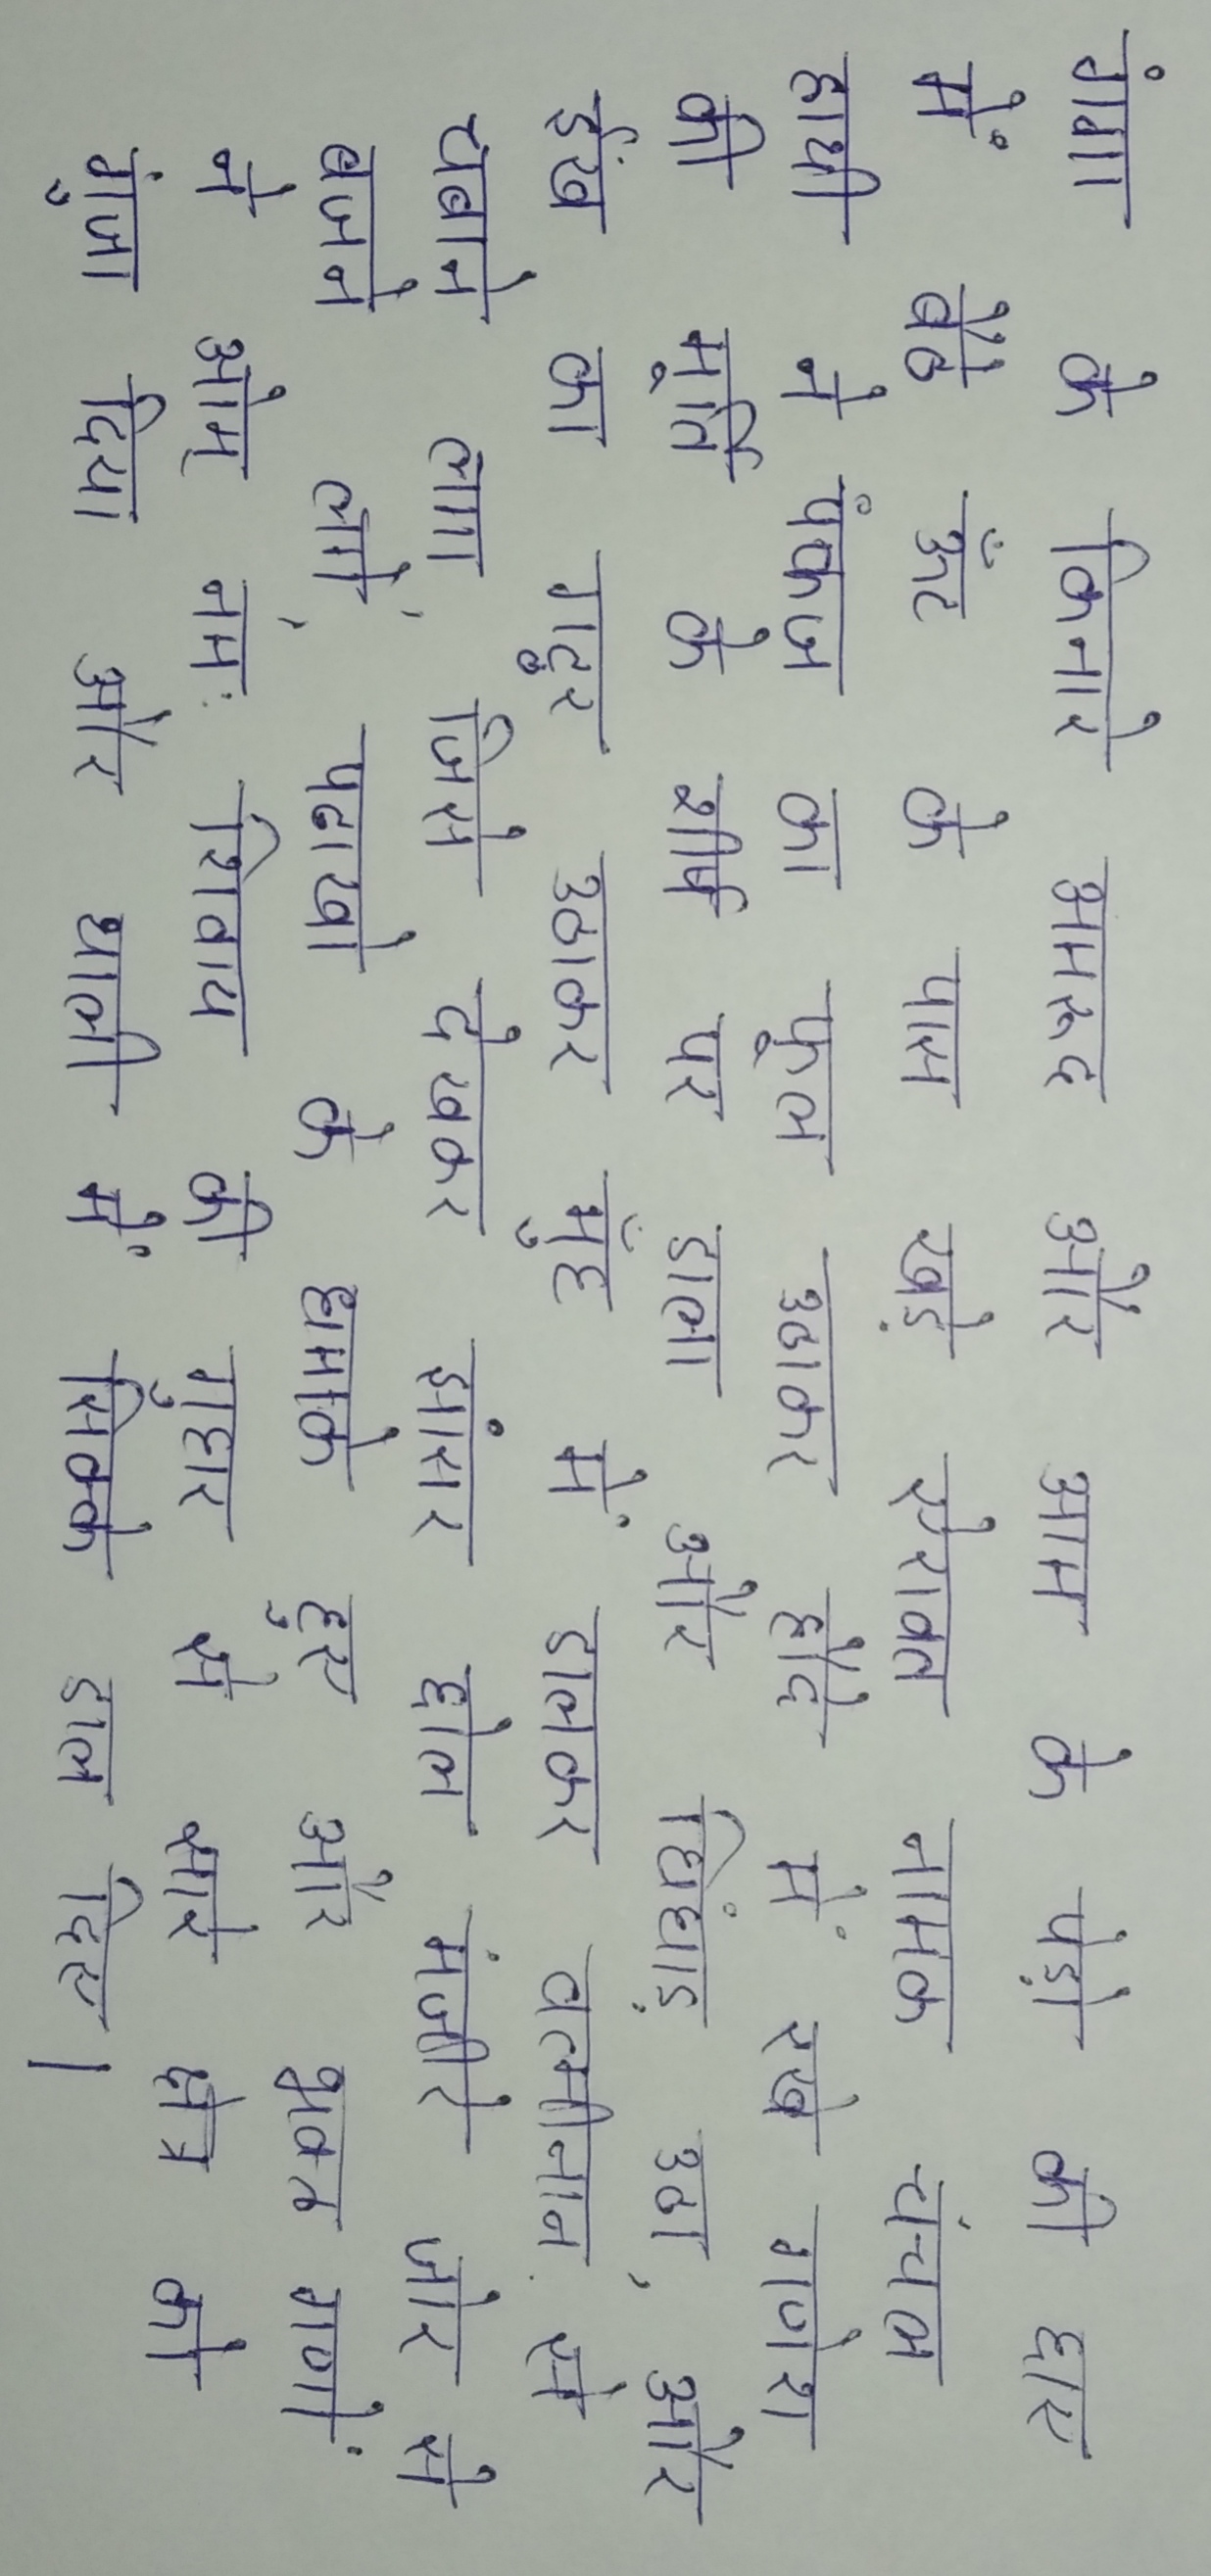 गंगा के किनारे अमरूद और आम के पेड़ो की छाए
में बैठे ऊँट के पास खड़े ऐरावत नामक चंचल
हाथी ने पंकज का फूल उठाकर हौदे में रखे गणेश
की मूर्ति के शीर्ष पर डाला और घिंघाड़ उठा, और
ईंख का गट्ठर उठाकर मुँह में डालकर वत्मीनान से
चबाने लगा, जिसे देखकर झांसर ढोल मंजीरे जोर से
बजने लगे, पटाखो के धमाके हुए और भक्त गणों
ने ओम् नमः शिवाय की गुहार से सारे क्षेत्र को
गुंजा दिया और थाली में सिक्के डाल दिए।